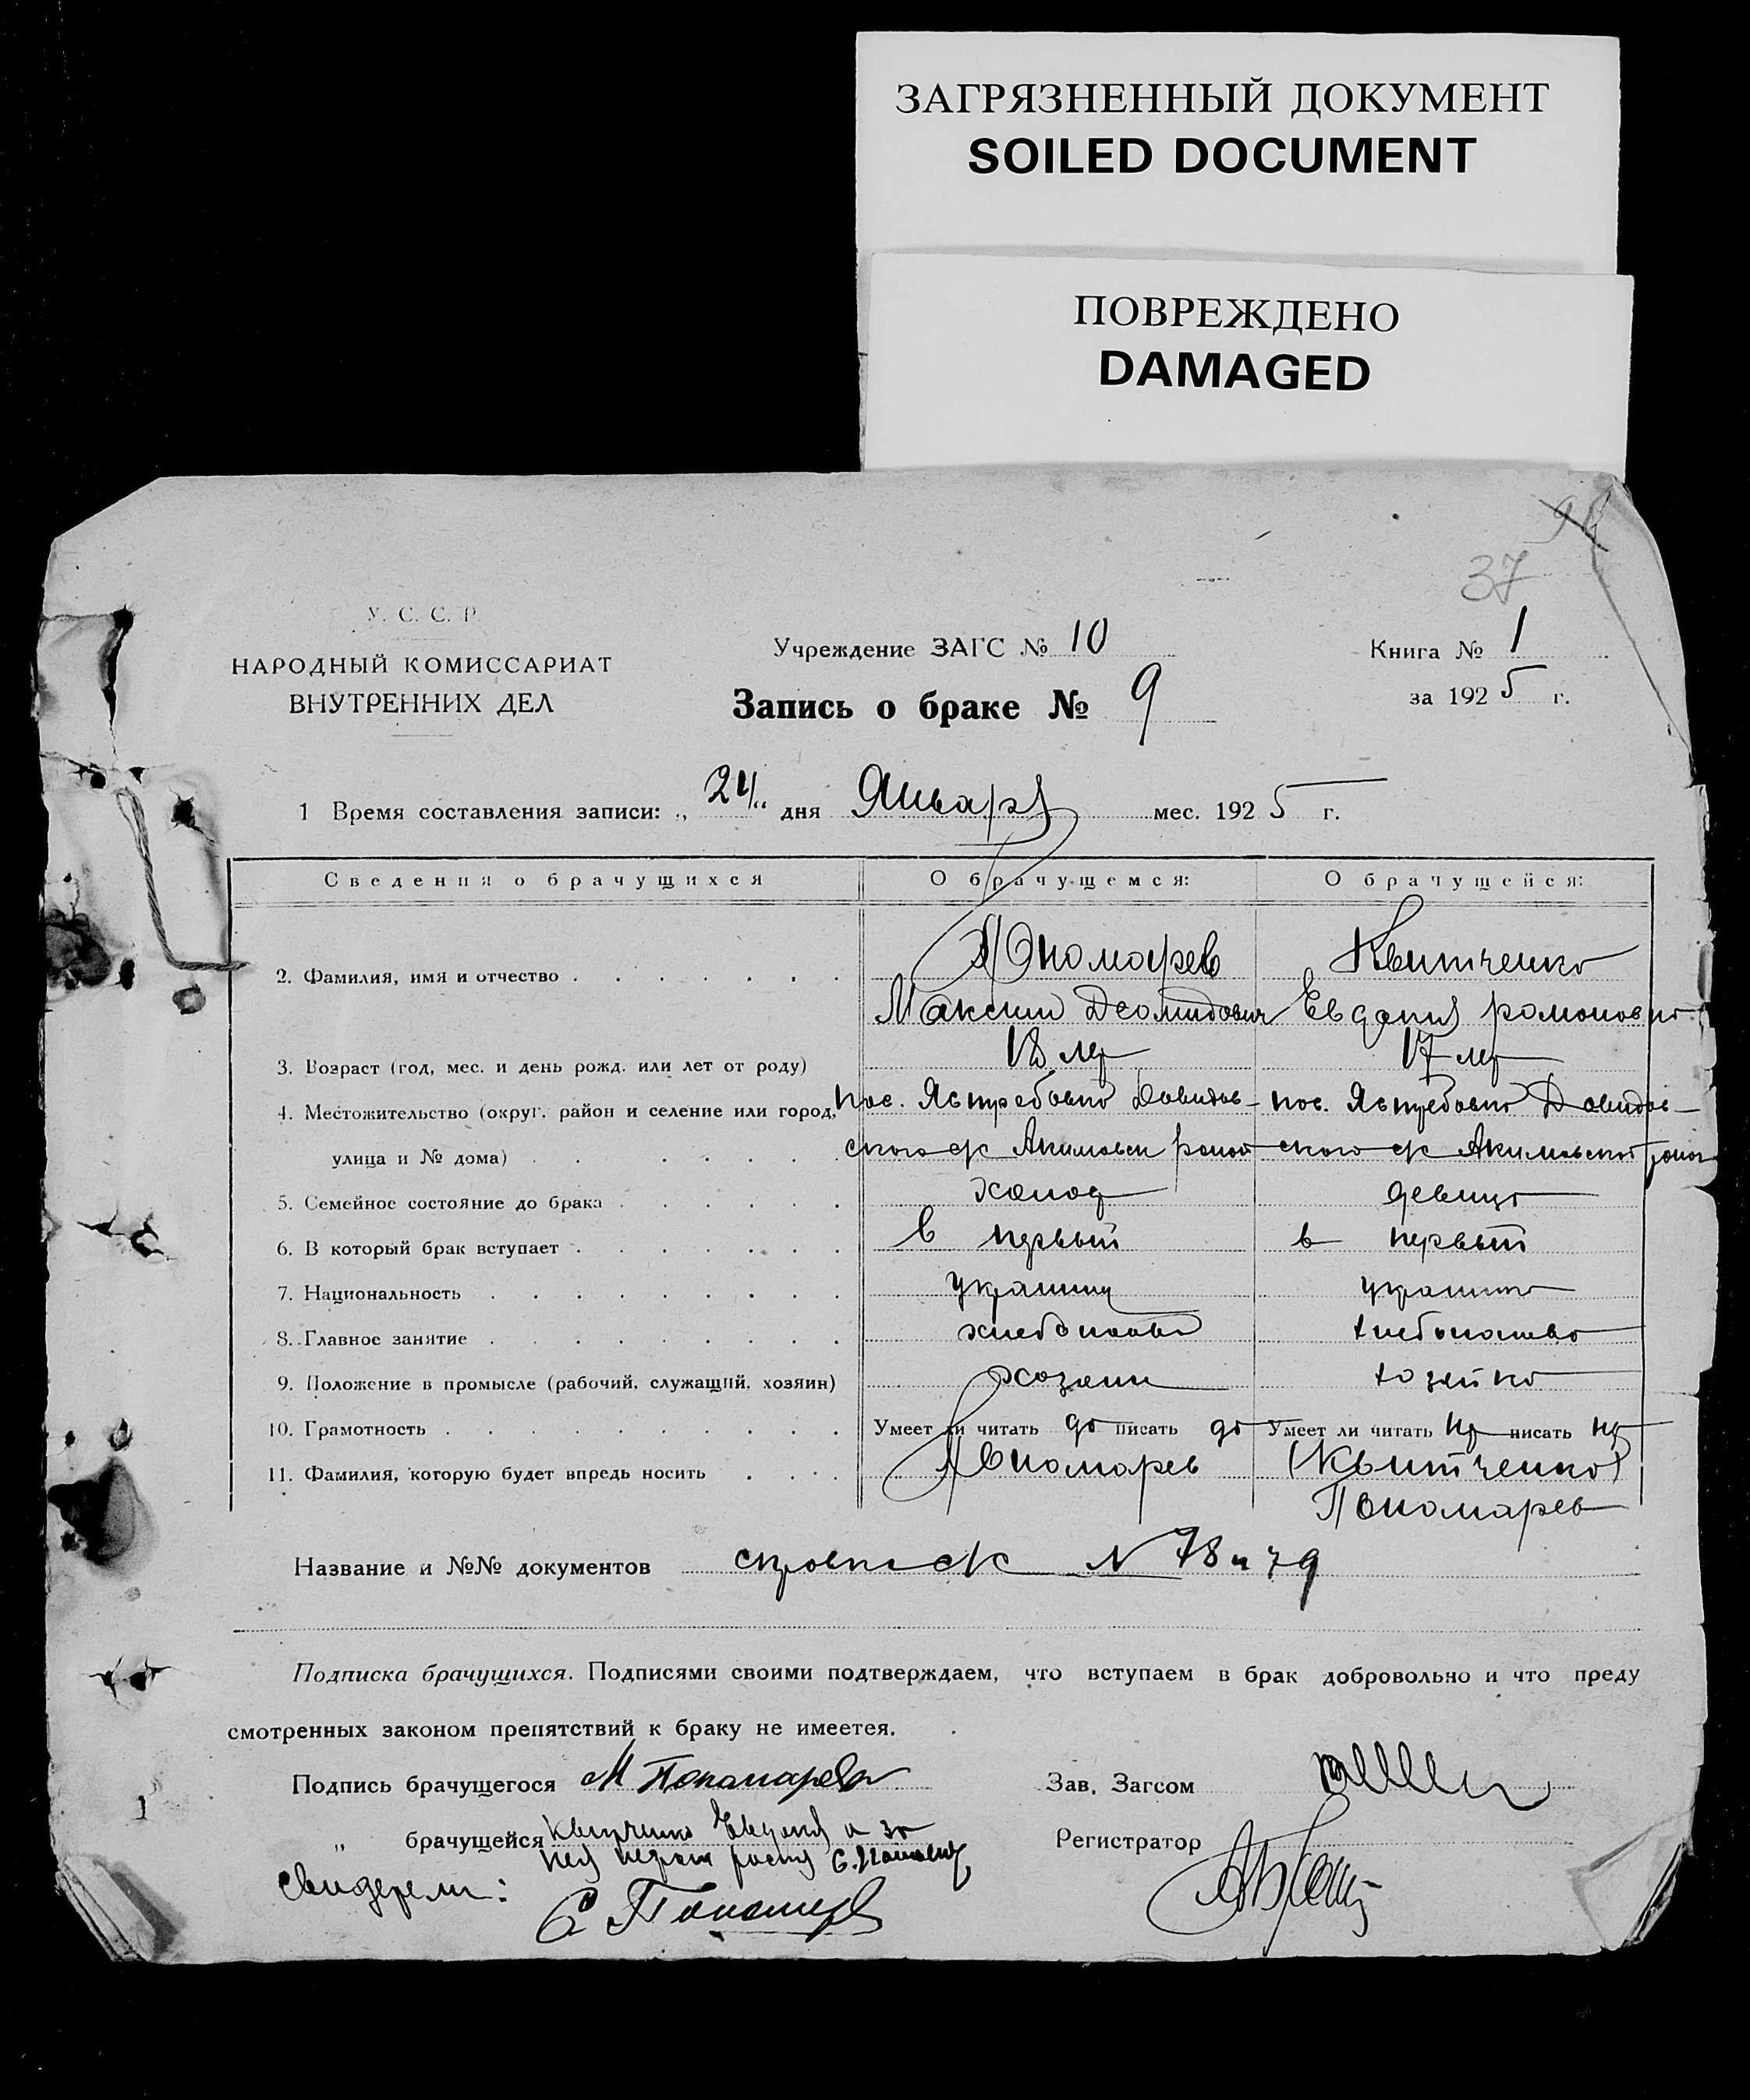 ЗАГРЯЗНЕННЫЙ ДОКУМЕНТ
SOILED DOCUMENT
ПОВРЕЖДЕНО
DAMAGED
37
У. С. С. Р.
НАРОДНЫЙ КОМИССАРИАТ
ВНУТРЕННИХ ДЕЛ
Учреждение ЗАГС № 10
Запись о браке № 9
Книга № 1
за 1925 г.
1 Время составления записи: „24“ дня Января мес. 1925 г.
Сведения о брачущихся О брачущемся: О брачущейся:
2. Фамилия, имя и отчество Пономарев Квитченко
Максим Деомидович Евдокия романовна
3. Возраст (год, мес. и день рожд. или лет от роду) 18 лет 17 лет
4. Местожительство (округ. район и селение или город, пос. Ястребовка Давидов- пос. Ястребовка Давидов-
улица и № дома) ского с/с Акимовск район ского с/с Акимовской район
5. Семейное состояние до брака холост девица
6. В который брак вступает в первый в первый
7. Национальность украинец украинка
8. Главное занятие хлебопашество хлебопашество
9. Положение в промысле (рабочий, служащий, хозяин) хозяин хозяйка
10. Грамотность Умеет ли читать да писать да Умеет ли читать не писать не
11. Фамилия, которую будет впредь носить Пономарев (Квитченко)
Пономарев
Название и №№ документов справка с/с N 78 и 79
Подписка брачущихся. Подписями своими подтверждаем, что вступаем в брак добровольно и что преду
смотренных законом препятствий к браку не имеетея.
Подпись брачущегося М Понамарев Зав. Загсом
„ брачущейся Квитченко Евдокия а за Регистратор
нея неграм роспис С.
Свидетели:
С